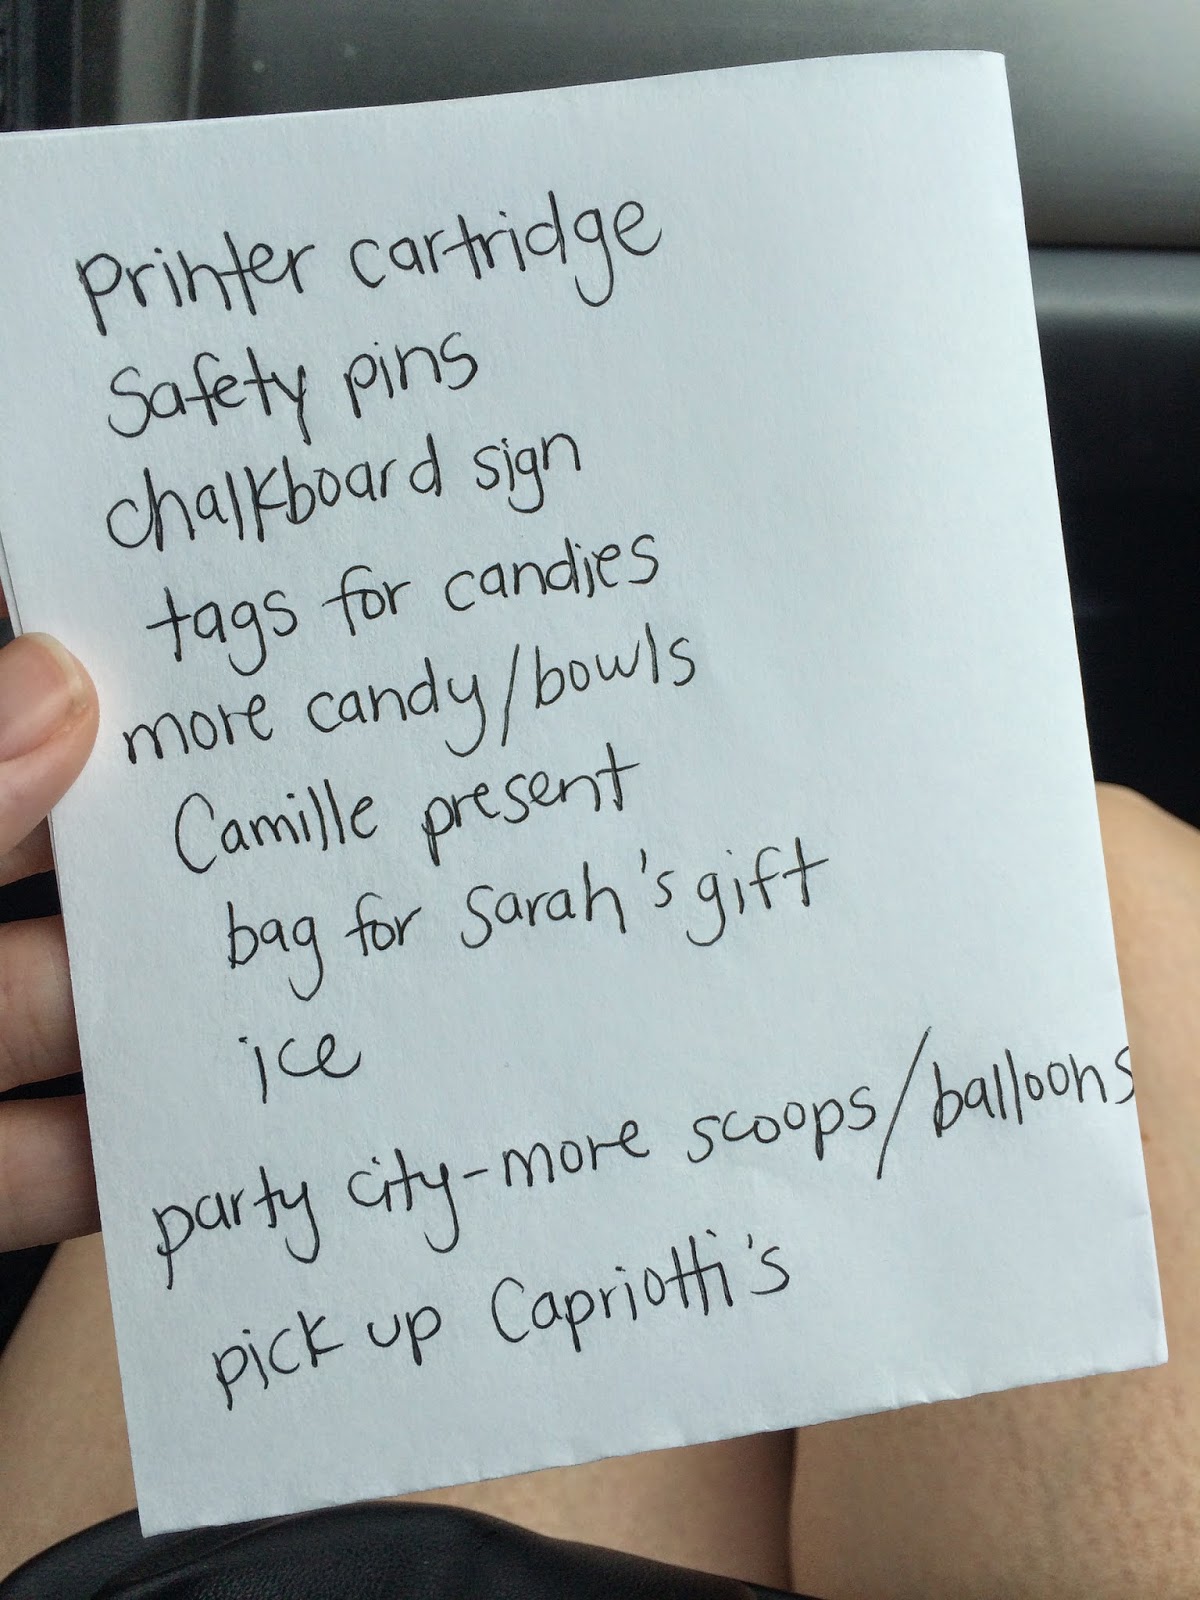 printer cartridge
Safety pins
chalkboard sign
tags for candies
more candy/bowls
Camille present
bag for Sarah's gift
ice
party city-more scoops/balloons
pick up Capriotti's